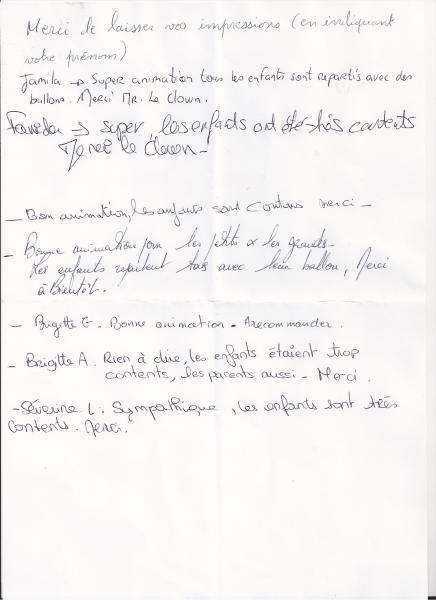 Merci de laisser vos impressions (en indiquant
votre prénom)
Jamila → Super animation tous les enfants sont repartis avec des
ballons. Merci MR. Le Clown.
→ super, les enfants ont été très contents
Merci le Clown -
- Bon animation, les enfants sont contens merci -
- Bonne animation pour les petits & les grands -
Les enfants repartent tous avec leur ballon, Merci
à Bientôt.
- Brigitte G. Bonne animation. A recommander.
- Brigitte A. Rien à dire, les enfants étaient trop
contents, les parents aussi - Merci.
- Séverine L : Sympathique, les enfants sont très
contents. Merci.